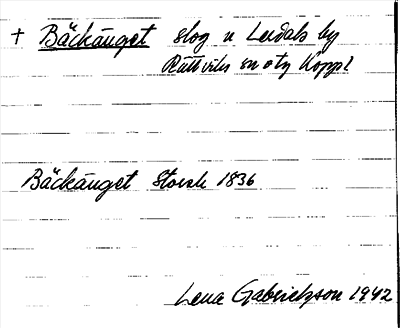 + Bäckänget skog n Lerdals by
Rättviks sn o tg Koppl
Bäckänget Storsk 1836
Lena Gabrielsson 1942